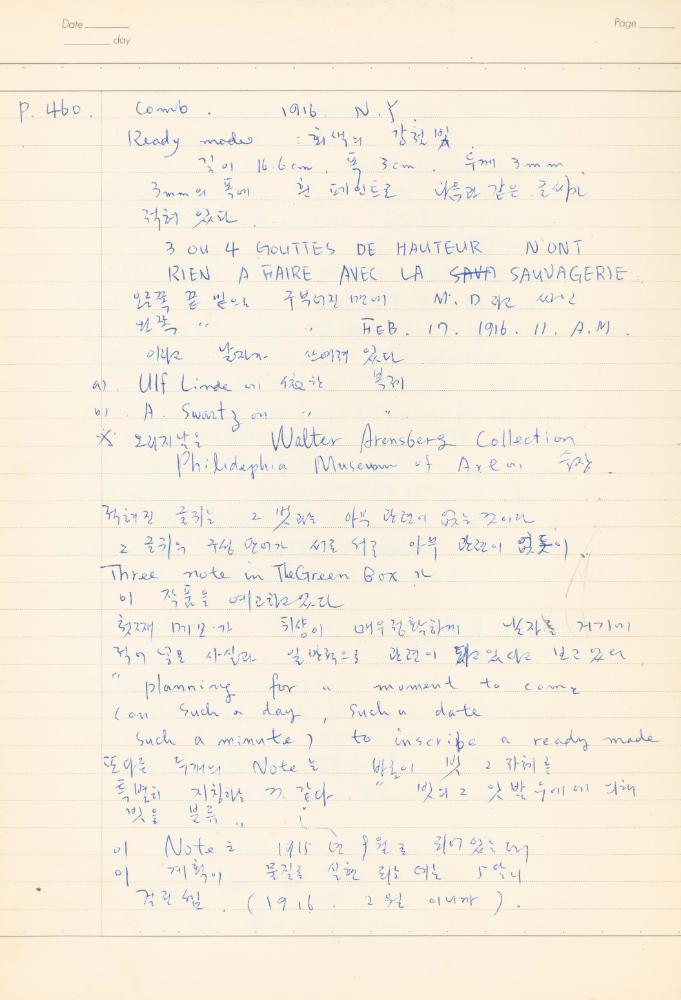 Date
day
Page
p. 460. Comb. 1916 N.Y.
Ready made : 회색의 강철 빛
길이 16.6cm. 폭 3cm. 두께 3mm.
3mm의 폭에 흰 페인트로 다음과 같은 글씨가
적혀 있다.
3 OU 4 GOUTTES DE HAUTEUR N'ONT
RIEN A FAIRE AVEC LA SAVA SAUVAGERIE
오른쪽 끝 밑으로 구부러진 면에 M. D 라고 싸인
왼쪽 〃 〃 FEB. 17. 1916. 11. A.M.
이라고 날자가 쓰여져 있다
a) Ulf Linde에 의한 복제
b) A. Swartz에 〃 〃
※ 오리지날은 Walter Arensberg Collection
Philidephia Museum of Art에 소장.
적혀진 글귀는 그 빗과는 아무 관련이 없는 것이다
그 글귀의 구성 단어가 서로 서로 아무 관련이 없듯이.
Three note in The Green Box가
이 작품을 예고하고 있다
첫째 메모가 뒤샹이 매우 정확하게 날자를 거기에
적어 넣은 사실과 일반적으로 관련이 되고 있다고 보고 있다
" planning for a moment to come
(on such a day, such a date
such a minute) to inscribe a ready made
또다른 두개의 Note는 바로 이 빗 그 자체를
특별히 지칭하는 것 같다. " 빗의 그 잇발 수에 의해
빗을 분류 "
이 Note는 1915년 9월로 되어 있는데
이 계획이 물질로 실현 되는 데는 5달이
걸린 셈. (1916. 2월 이니까).